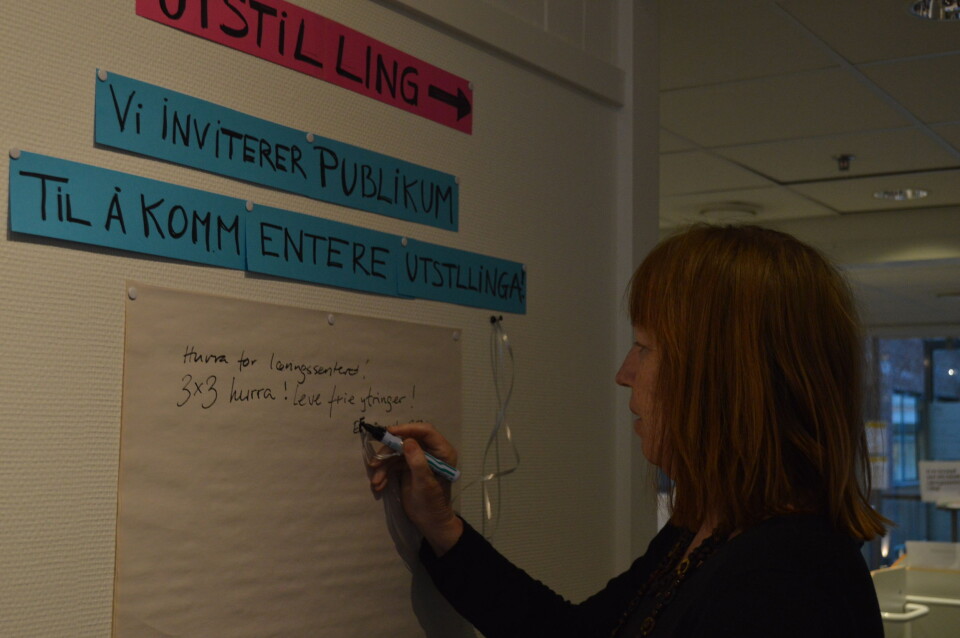 UTSTiLLING
Vi iNViTERER PUBLiKUM
TiL Å KOMMENTERE UTSTLLINGA!
Hurra for læringssenteret!
3x3 hurra! Leve frie ytringer!